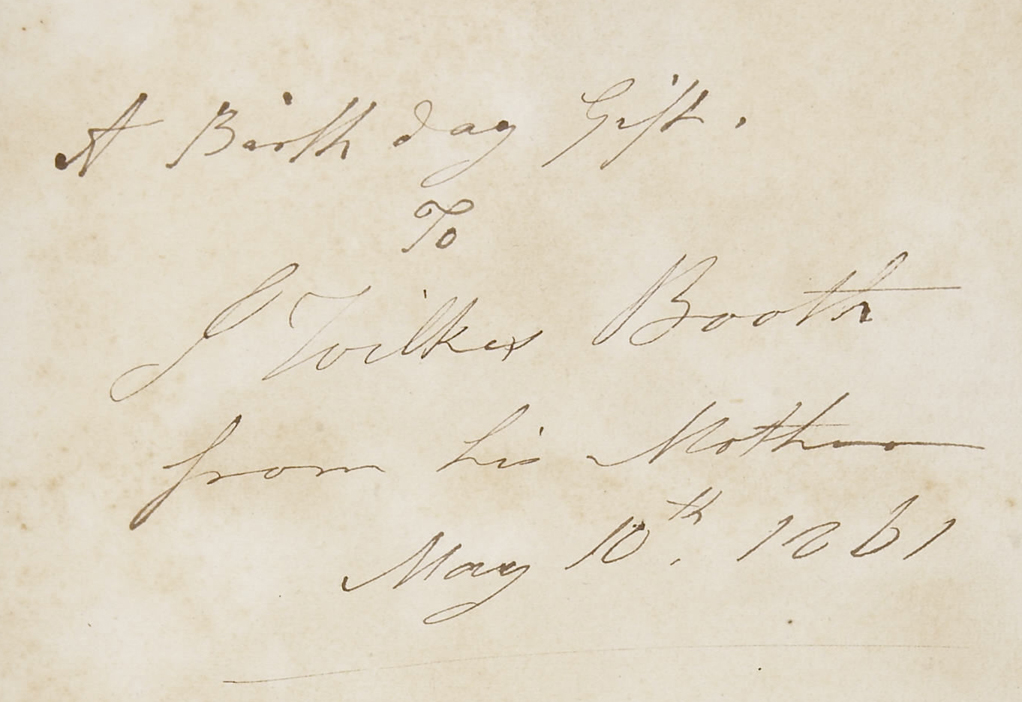 A Birth day Gift.
To
J Wilkes Booth
from his Mother
May 10th. 1861